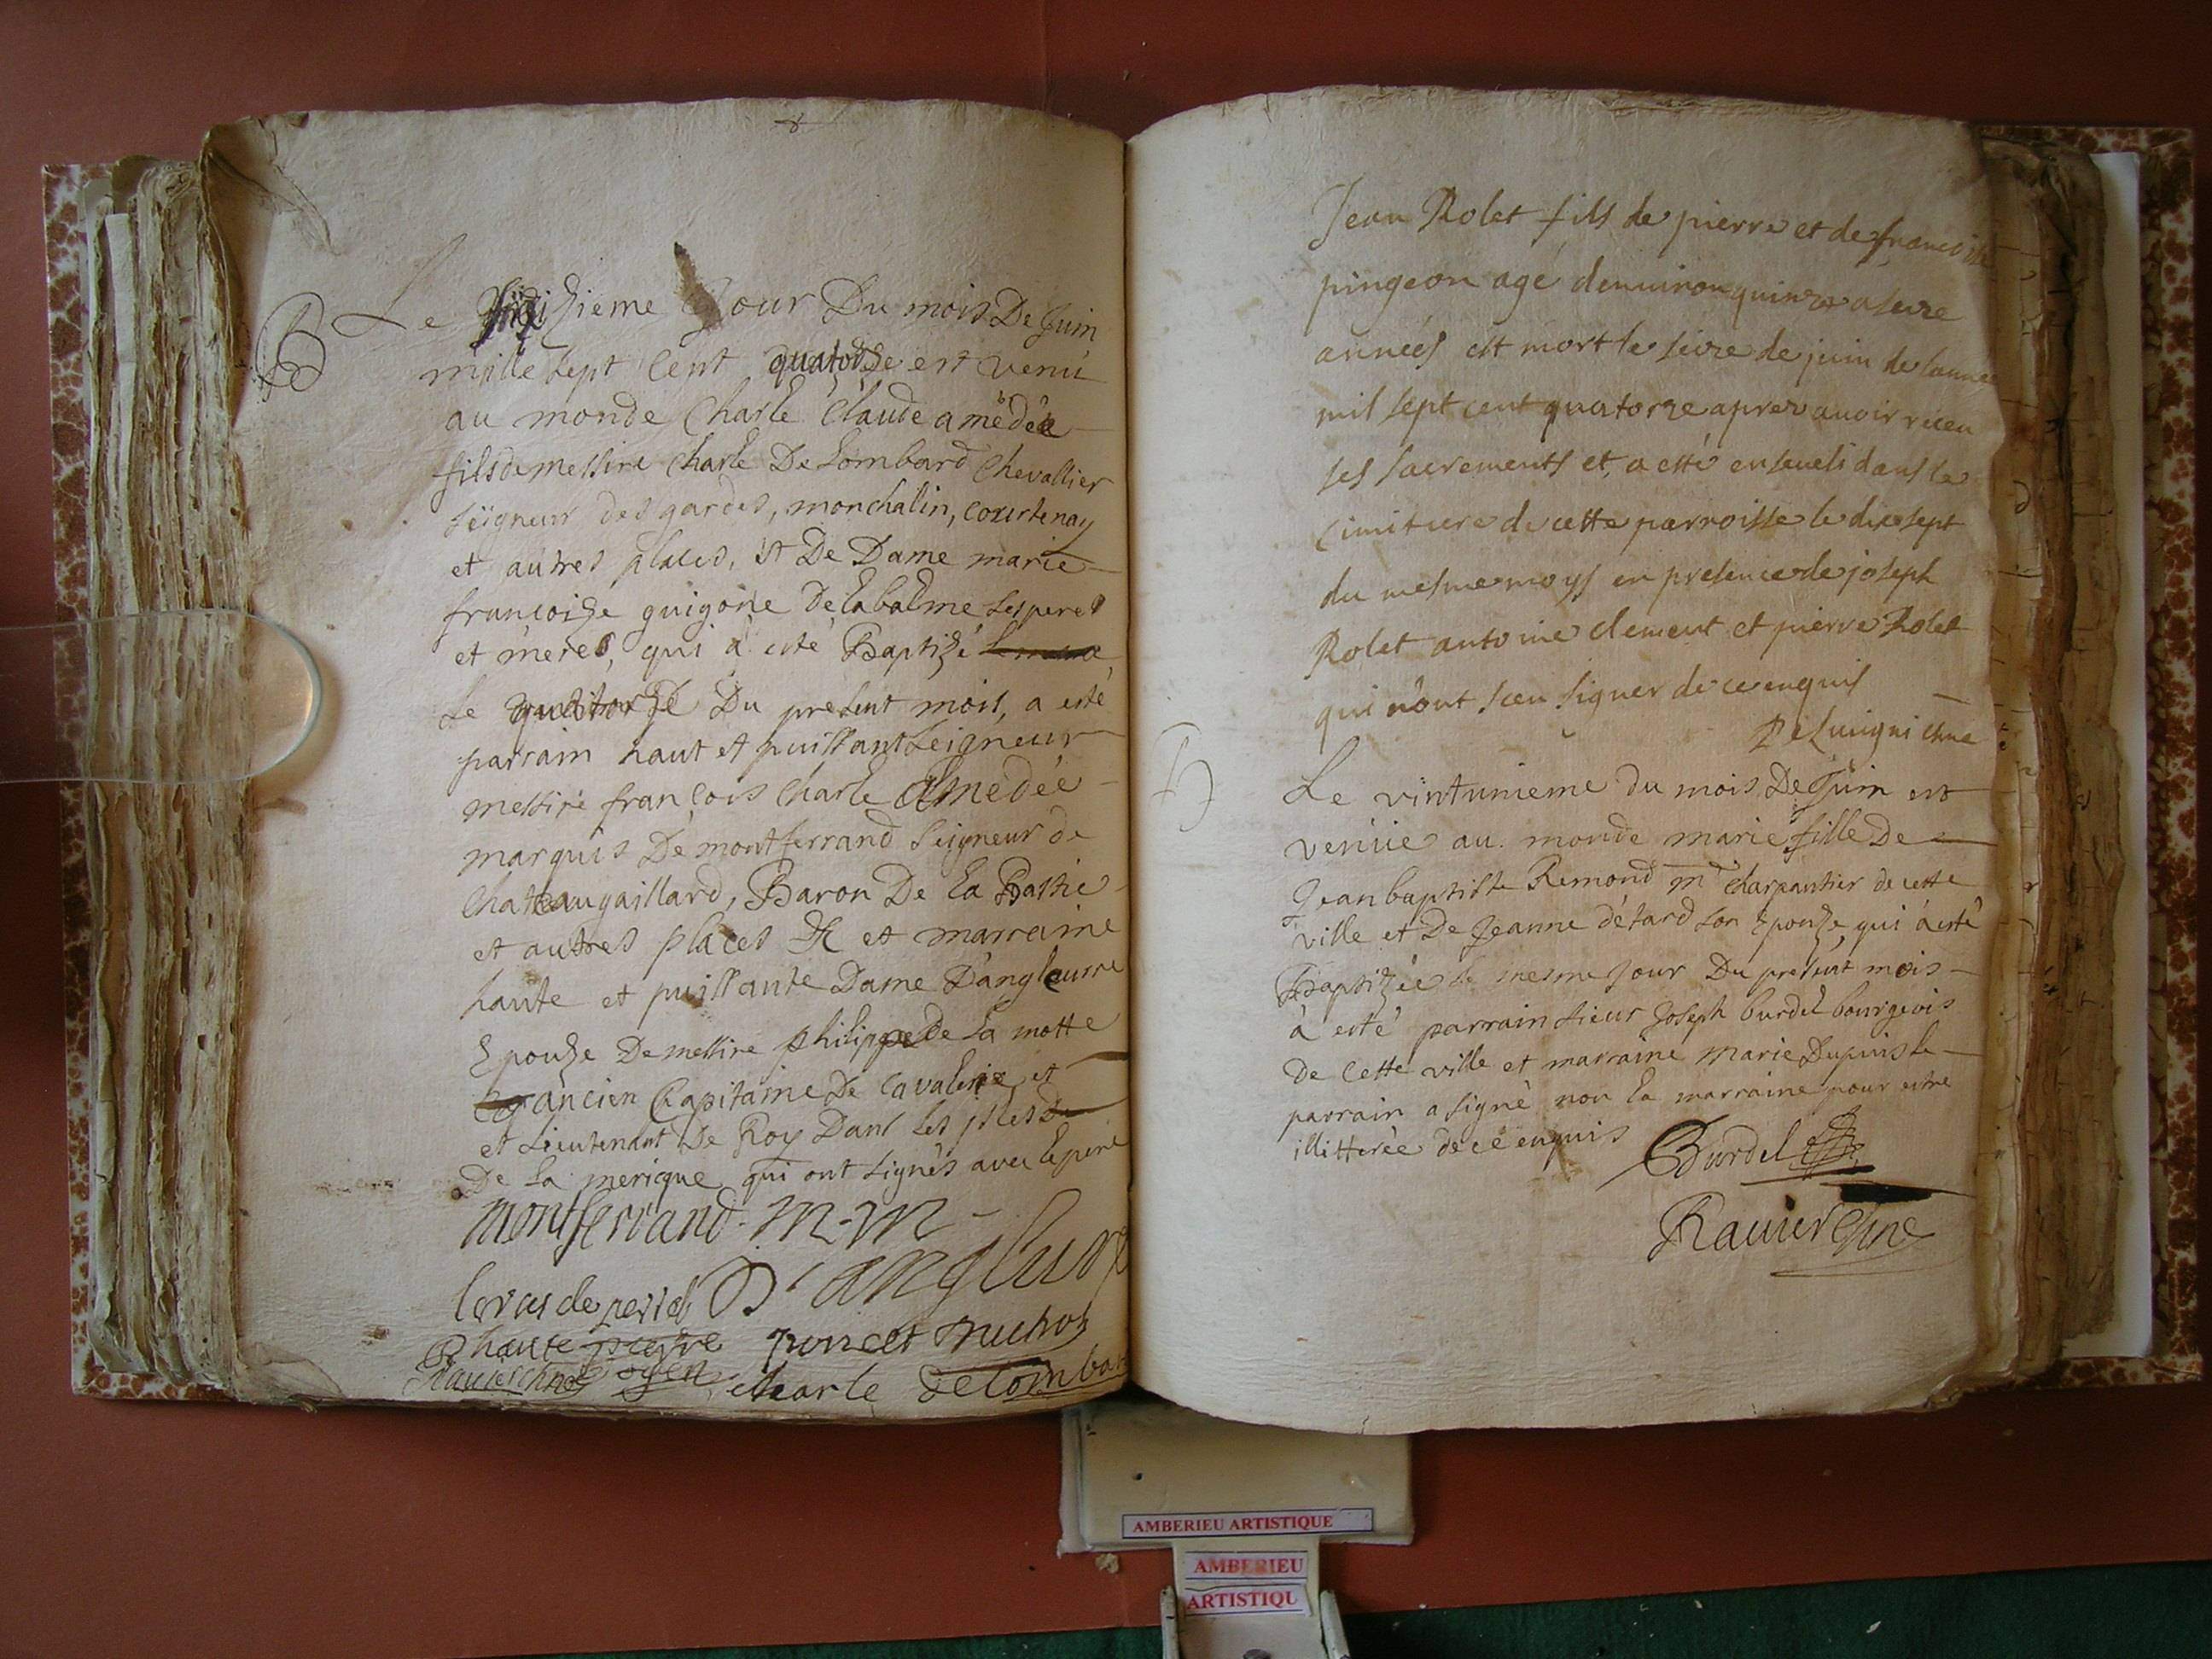 B
Le treizieme Jour Du mois De Juin
mille sept Cent quatorze est venu
au monde Charle Claude amédée
fils de messire Charle De Lombard Chevallier
seigneur des gardes, monchalin, courtenay
et autres places, et De Dame marie
francoize guigone De labalme ses peres
et meres, qui à esté Baptizé
Le quatorze Du present mois, a esté
parrain haut et puissant seigneur
messire françois Charle Amedée
marquis De montferrand seigneur de
Chateaugaillard, Baron De la Bastie
et autres places &c et marraine
haute et puissante Dame D'angleurre
Epouze De messire philippe De la motte
ancien Capitaine De Cavalerie, et
et Lieutenant De Roy Dans Les isles
De La merique, qui ont signés avec le pere
montferrand - m - m -
D'anglure
hautepierre poncet
Ravier charle delombar
Jean Rolet fils de pierre et de francoise
pingeon agé denuiron quinze a seize
années est mort le seize de juin de lannee
mil sept cent quatorze apres auoir receu
ses sacrements et a esté enseueli dans le
cimitiere de cette parroisse le dixsept
du mesme moys en presence de joseph
Rolet antoine clement et pierre Rolet
qui n'ont sceu signer de ce enquis
B
Le vintunieme du mois De Juin est
venüe au monde marie fille De
Jean baptiste Remond mre charpantier de cette
ville et De Jeanne détard son Epouze, qui à esté
Baptizée le mesme Jour Du present mois
à esté parrain sieur Joseph burdel bourgeois
De Cette ville et marraine marie Dupuis le
parrain a signé non la marraine pour estre
illitterée de ce enquis
Burdel
Ravier
AMBERIEU ARTISTIQUE
AMBERIEU
ARTISTIQU